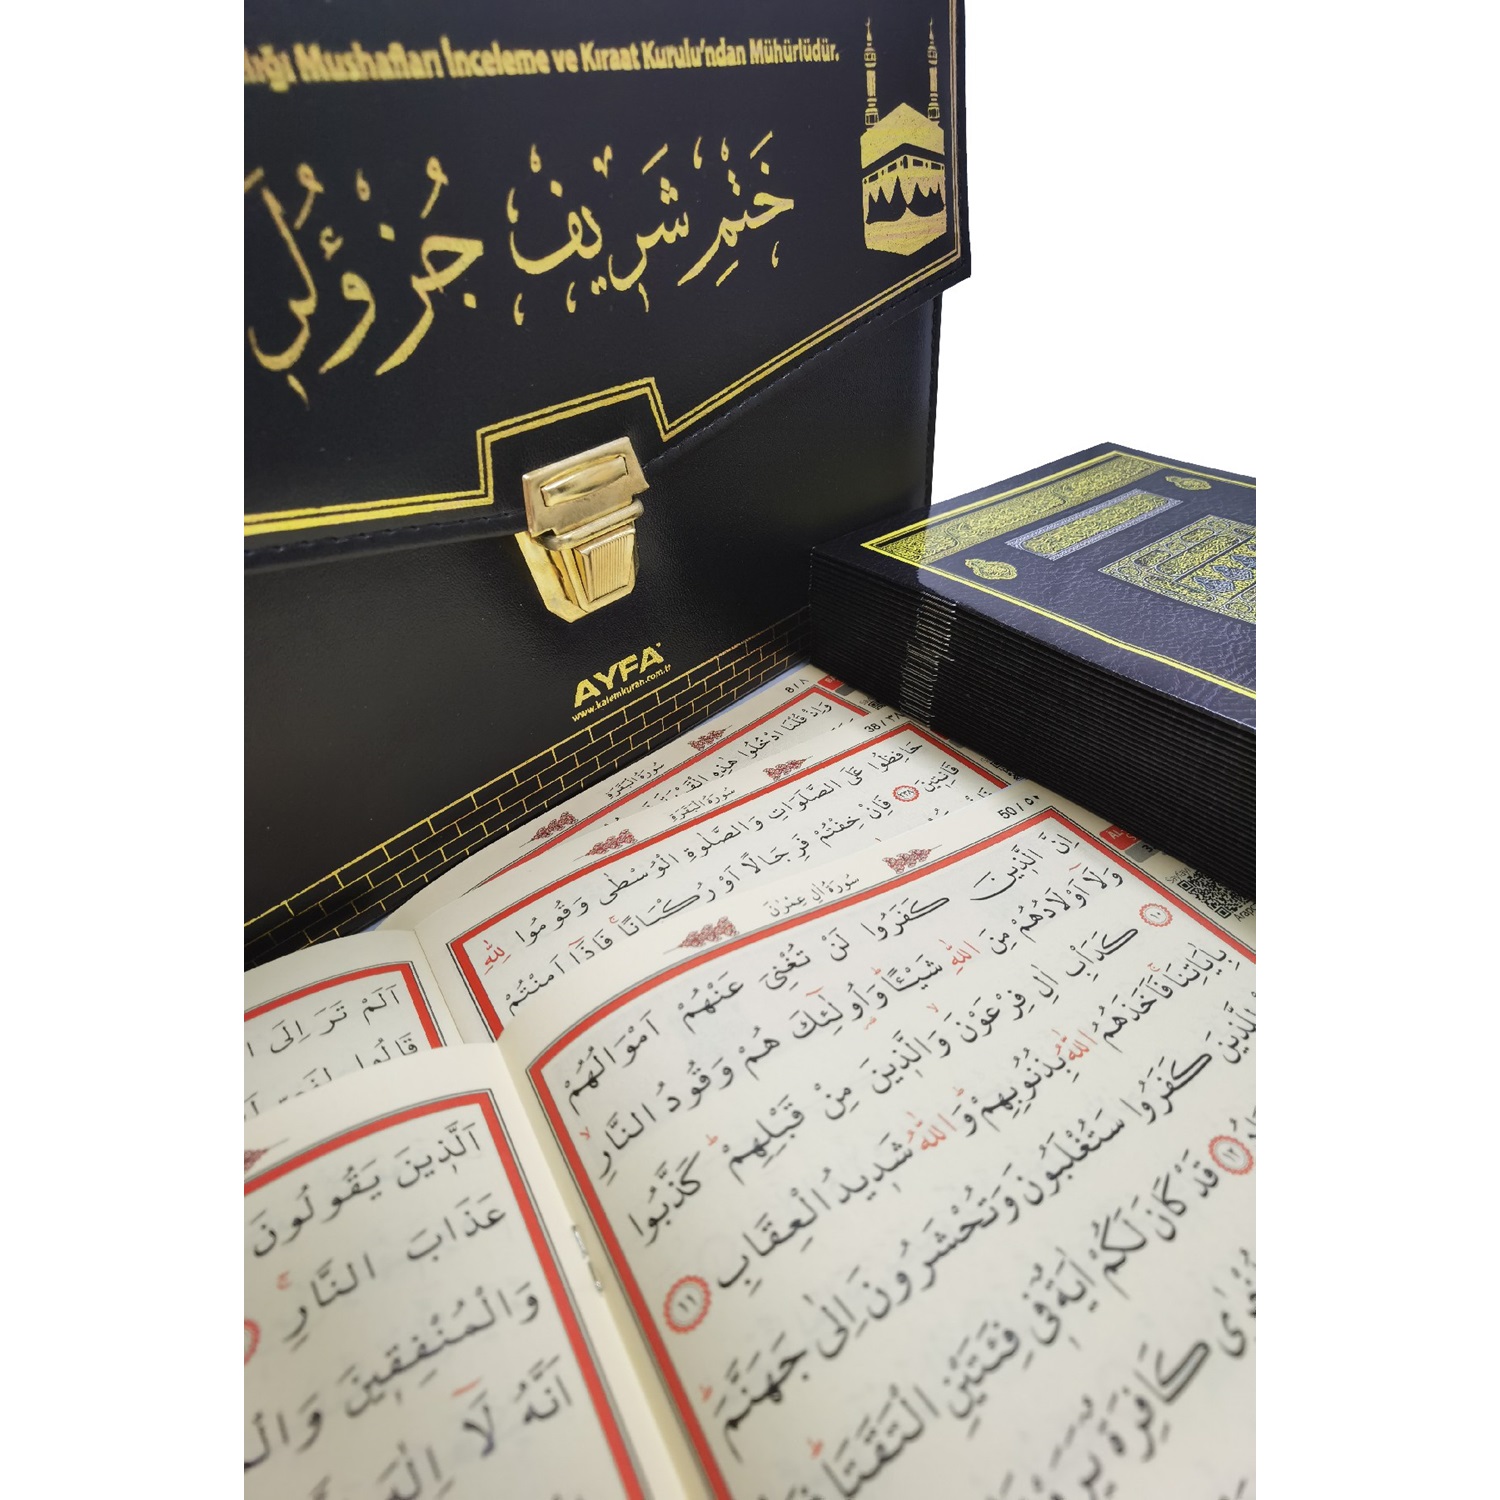 Mushafları İnceleme ve Kıraat Kurulu'ndan Mühürlüdür.
خَتْمِ شَرِيفْ جُزْؤُلَرِ
AYFA
www.kalemkuran.com.tr
8 / ٨
سُورَةُ الْبَقَرَةِ
وَاِذْ قُلْنَا ادْخُلُوا هٰذِهِ الْقَرْيَةَ
38 / ٣٨
سُورَةُ الْبَقَرَةِ
حَافِظُوا عَلَى الصَّلَوَاتِ وَالصَّلٰوةِ الْوُسْطٰى وَقُومُوا لِلّٰهِ
قَانِتٖينَ ٢٣٨ فَاِنْ خِفْتُمْ فَرِجَالًا اَوْ رُكْبَانًا فَاِذَٓا اَمِنْتُمْ
50 / ٥٠
سُورَةُ اٰلِ عِمْرٰنَ
اِنَّ الَّذٖينَ كَفَرُوا لَنْ تُغْنِيَ عَنْهُمْ اَمْوَالُهُمْ
وَلَٓا اَوْلَادُهُمْ مِنَ اللّٰهِ شَيْـًٔا وَاُولٰٓئِكَ هُمْ وَقُودُ النَّارِ
١٠ كَدَأْبِ اٰلِ فِرْعَوْنَ وَالَّذٖينَ مِنْ قَبْلِهِمْ كَذَّبُوا
بِاٰيَاتِنَا فَاَخَذَهُمُ اللّٰهُ بِذُنُوبِهِمْ وَاللّٰهُ شَدٖيدُ الْعِقَابِ ١١
لِلَّذٖينَ كَفَرُوا سَتُغْلَبُونَ وَتُحْشَرُونَ اِلٰى جَهَنَّمَ
١٢ قَدْ كَانَ لَكُمْ اٰيَةٌ فٖي فِئَتَيْنِ الْتَقَتَا
كَافِرَةٌ
اَلَمْ تَرَ اِلَى
قَالُوا
اَلَّذٖينَ يَقُولُونَ
عَذَابَ النَّارِ
وَالْمُنْفِقٖينَ
اَنَّهُ لَٓا اِلٰهَ